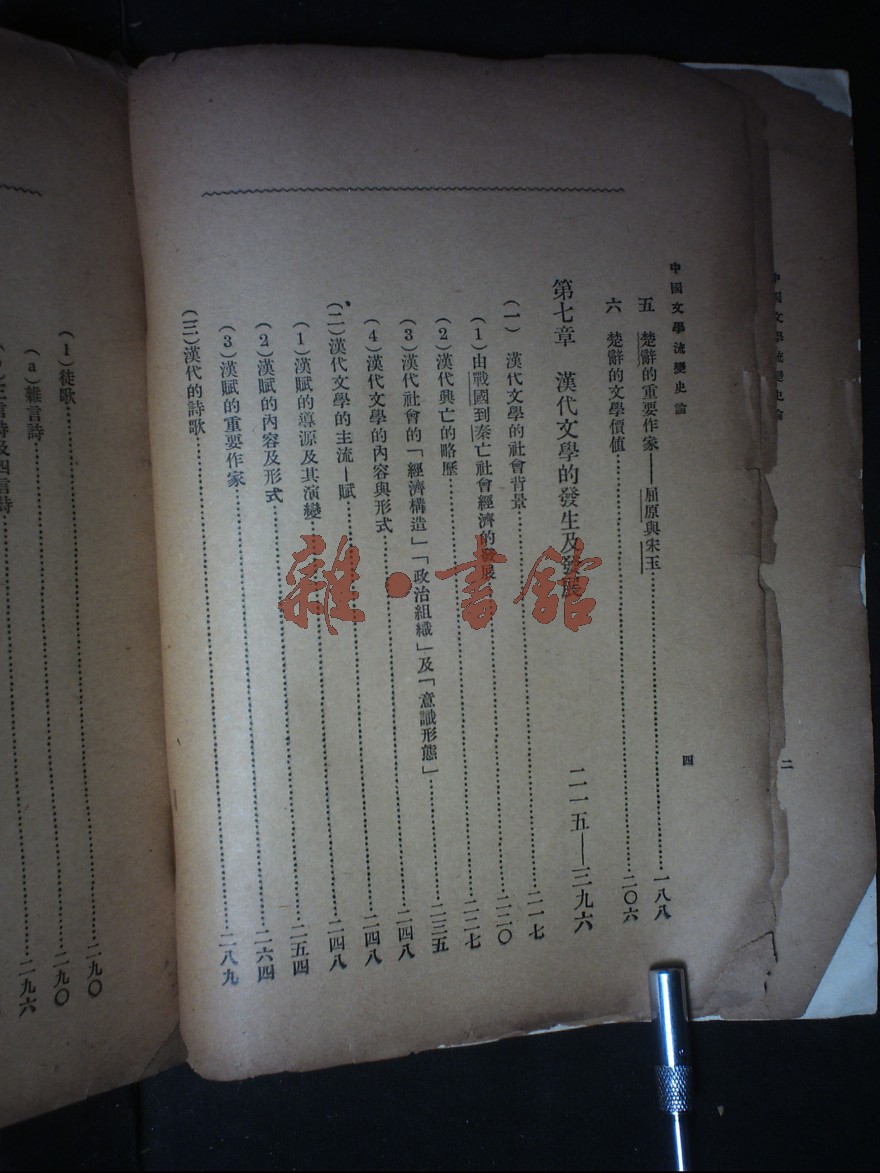 中國文學流變史論 二
中國文學流變史論 四
五 楚辭的重要作家——屈原與宋玉……一八八
六 楚辭的文學價值……二〇六
第七章 漢代文學的發生及發展 二一五——三九六
(一) 漢代文學的社會背景……二一七
(1)由戰國到秦亡社會經濟的發展……二二〇
(2)漢代興亡的略歷……二二七
(3)漢代社會的「經濟構造」「政治組織」及「意識形態」……二三五
(4)漢代文學的內容與形式……二四八
(二)漢代文學的主流—賦……二四八
(1)漢賦的導源及其演變……二四八
(2)漢賦的內容及形式……二五四
(3)漢賦的重要作家……二六四
(三)漢代的詩歌……二八九
(1)徒歌……二九〇
(a)雜言詩……二九〇
五言詩及四言詩……二九六
雜·書館